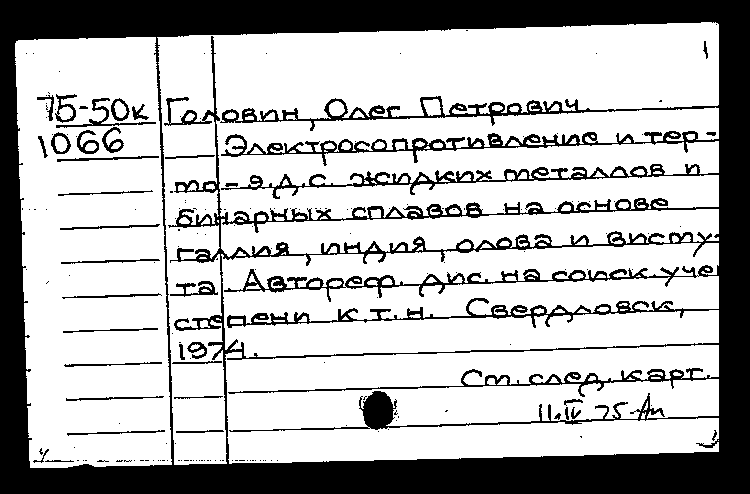 1
75-50к Головин, Олег Петрович.
1066 Электросопротивление и тер-
мо-э.д.с. жидких металлов и
бинарных сплавов на основе
галлия, индия, олова и висму-
та. Автореф. дис. на соиск. учен
степени к.т.н. Свердловск,
1974.
См. след. карт.
11.IV 75